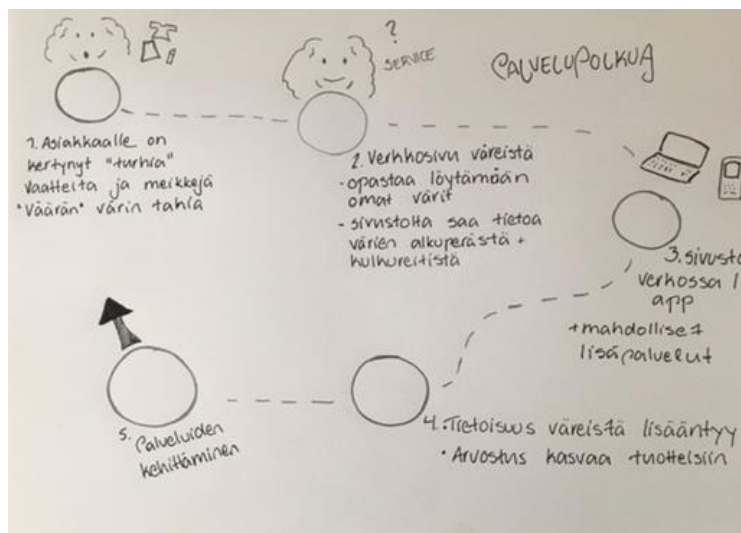 PALVELUPOLKUA
?
SERVICE
1. Asiakkaalle on
kertynyt "turhia"
vaatteita ja meikkejä
"Väärän" värin takia
2. Verkkosivu väreistä
- opastaa löytämään
omat värit
- sivustolta saa tietoa
värien alkuperästä +
kulkureitistä
3. sivusto
verkossa /
app
+ mahdolliset
lisäpalvelut
4. Tietoisuus väreistä lisääntyy
• Arvostus kasvaa tuotteisiin
5. Palveluiden
kehittäminen